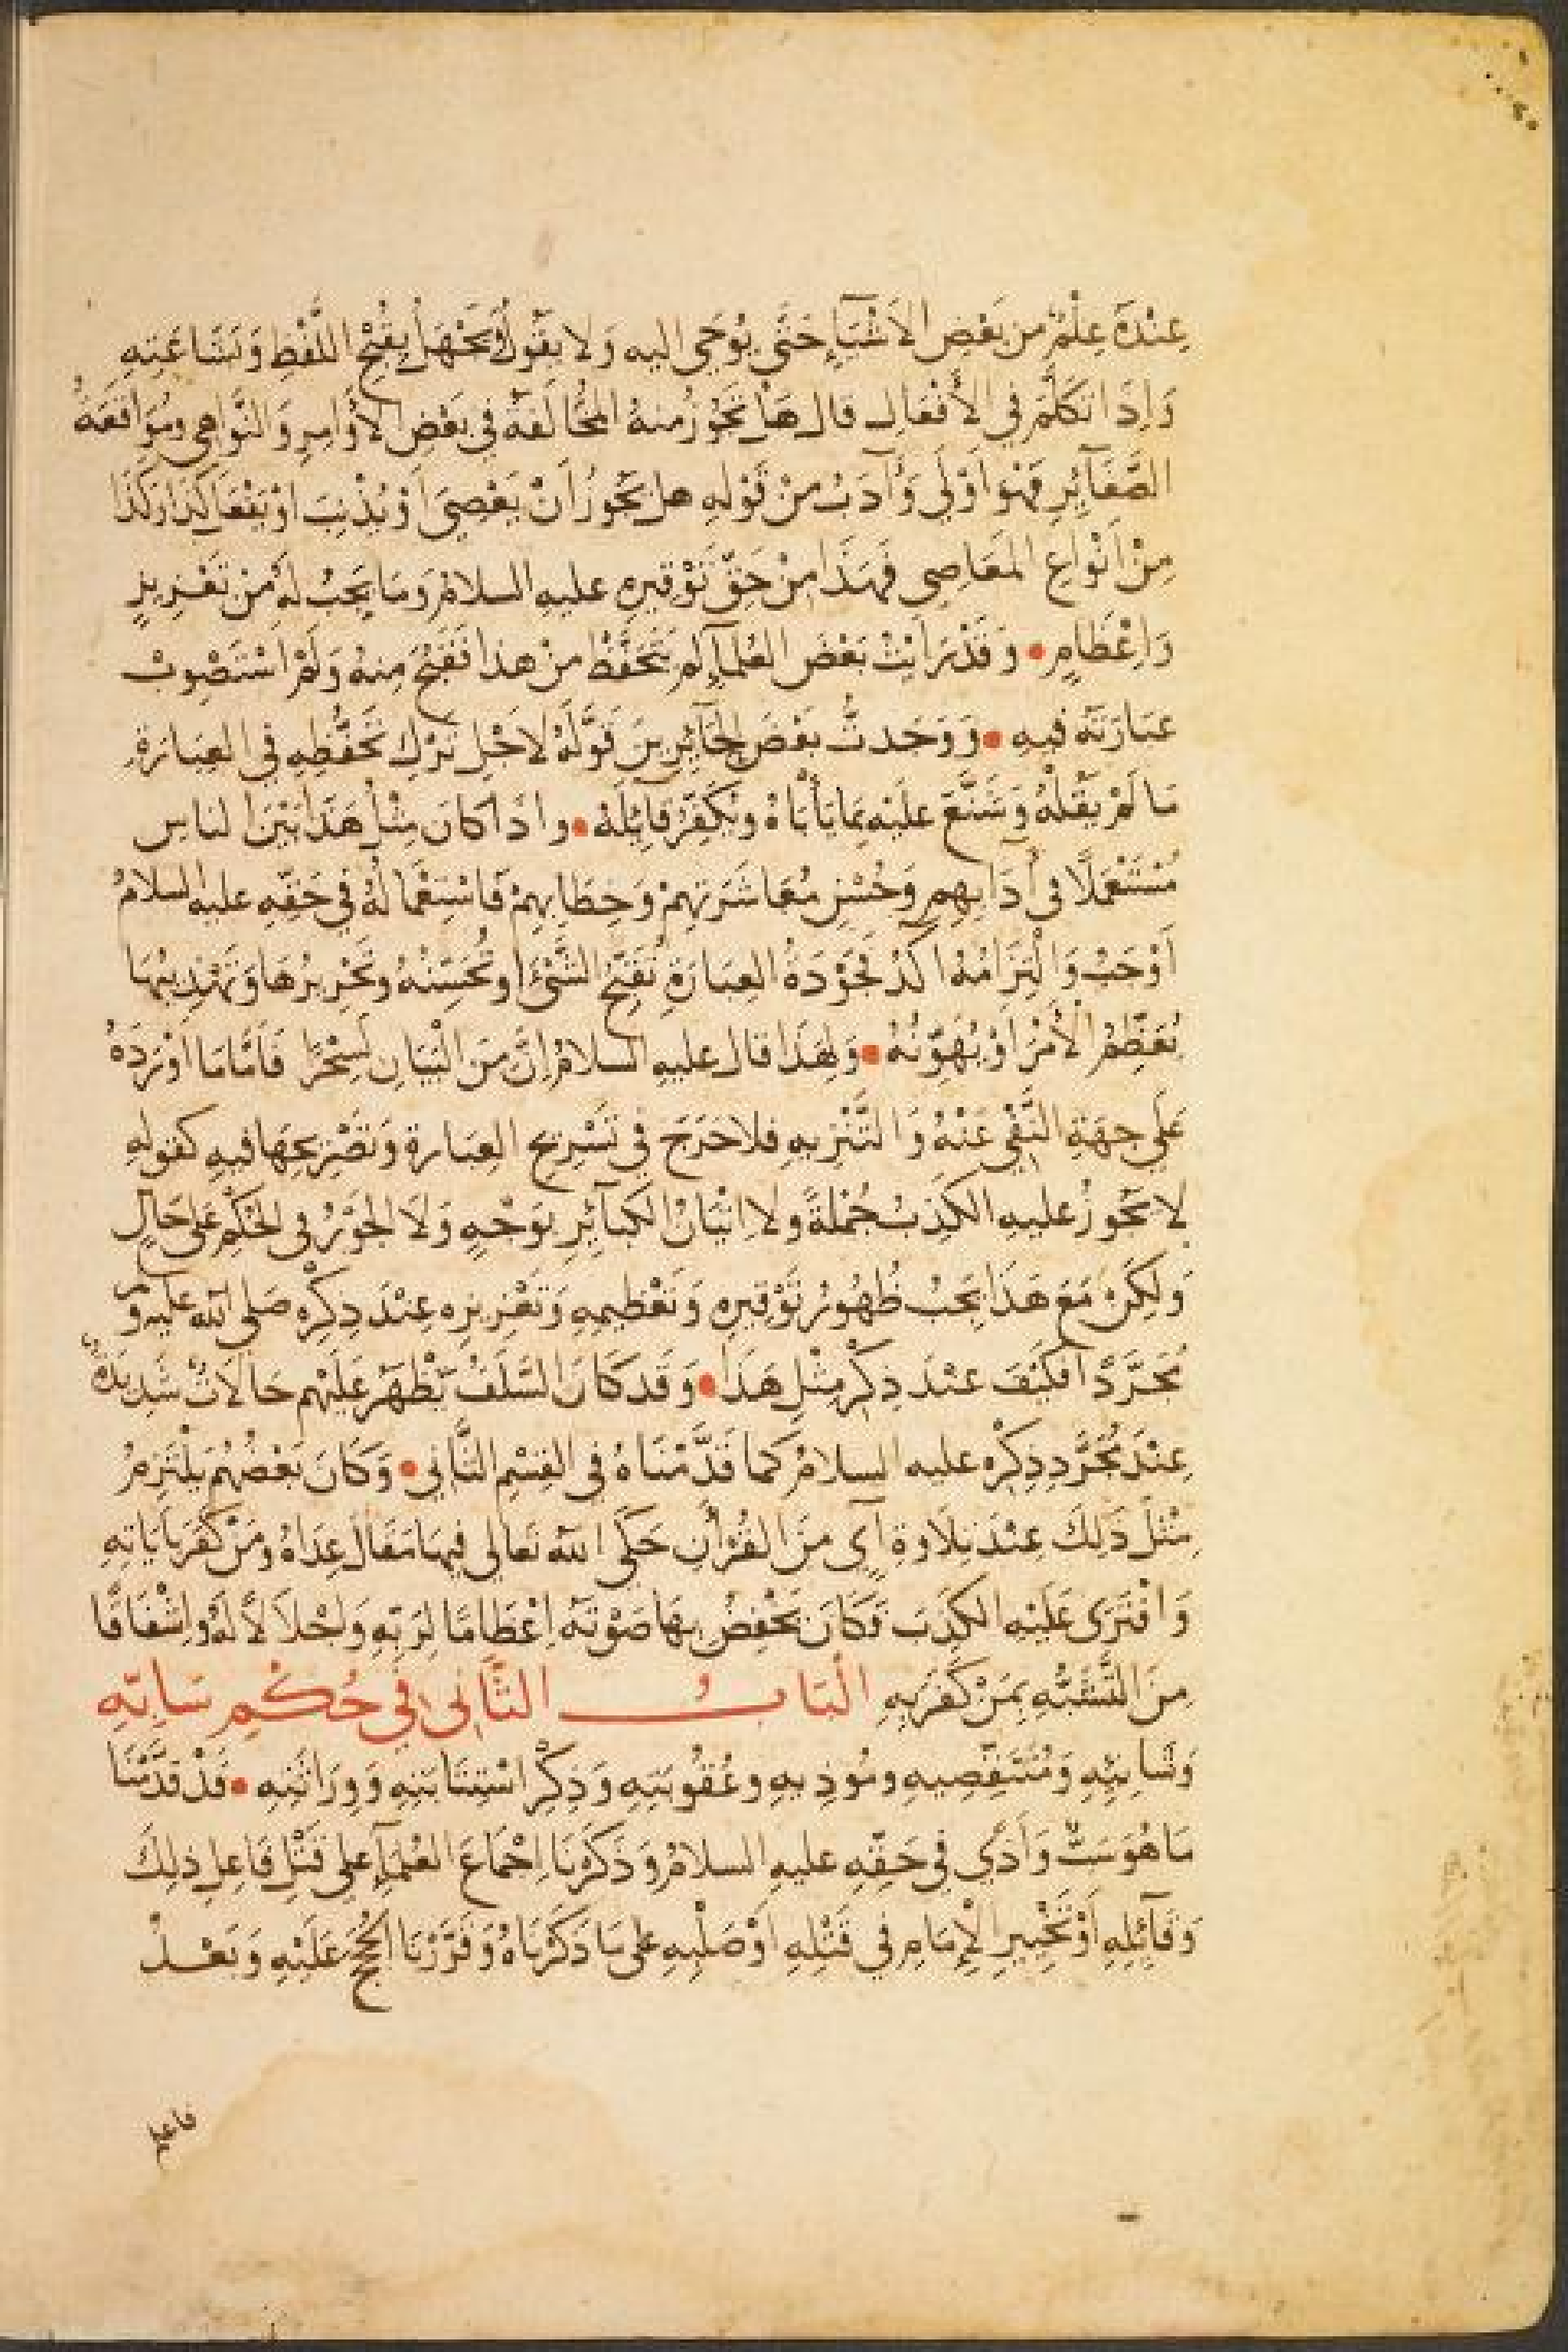 عِنْدَهُ عِلْمٌ مِن بَعْضِ الأَشْيَاءِ حَتَّى يُوحَى اليه وَلا يَقُولُ بِجَهْلٍ لِقُبْحِ اللَّفْظِ وَبَشَاعَتِهِ
وَاِذَا تَكَلَّمَ فِي الأَفْعَالِ قال هَلْ تَجُوزُ مِنهُ المُخَالَفَةُ فِي بَعْضِ الأَوَامِرِ وَالنَّوَاهِي وَمُوَاقَعَةُ
الصَّغَآئِرِ فَهُوَ اَوْلَى وَآدَبُ مِنْ قَوْلِهِ هل يَجُوزُ اَنْ يَعْصِيَ اَوْ يُذْنِبَ اَوْ يَفْعَلَ كَذَا وَكَذَا
مِنْ اَنْوَاعِ المَعَاصِي فَهَذَا مِنْ حَقِّ تَوْقِيرِهِ عليهِ السلامُ وَمَا يَجِبُ لَهُ مِنْ تَعْزِيزٍ
وَاِعْظَامٍ • وَقَدْ رَاَيْتُ بَعْضَ العُلمآءِ لم يَتَحَفَّظْ مِنْ هذا فَقَبُحَ مِنهُ وَلَمْ اَسْتَصْوِبْ
عِبَارَتَهُ فيهِ • وَوَجَدتُ بَعْضَ الجَآئِرِينَ قَوَّلَهُ لاَجْلِ تَرْكِ تَحَفُّظِهِ فِي العِبَارَةِ
مَا لَمْ يَقُلْهُ وَشَنَّعَ عَلَيْهِ بِمَا يَأْبَاهُ وَيُكَفِّرُ قآئِلَهُ • واذَا كانَ مِثْلُ هَذَا بَيْنَ الناسِ
مُسْتَعْمَلًا فى آدَابِهِم وَحُسْنِ مُعَاشَرَتِهِمْ وَخِطَابِهِمْ فَاسْتِعْمَالُهُ فِي حَقِّهِ عليه السلامُ
اَوْجَبُ وَالْتِزَامُهُ اكَدُ فَجَوْدَةُ العِبَارَةِ تُقَبِّحُ الشَّيْءَ اوتُحَسِّنُهُ وتَحْرِيرُهَا وَتَهْذِيبُهَا
يُعَظِّمُ الْأَمْرَ اَوْ يُهَوِّنُهُ • وَلِهَذَا قال عليهِ السلامُ اِنَّ مِنَ الْبَيَانِ لَسِحْرًا فَأَمَّا مَا اَوْرَدَهُ
عَلَى جِهَةِ النَّفْيِ عَنْهُ وَالتَّنْزِيهِ فلا حَرَجَ فِي تَسْرِيحِ العِبَارةِ وَتَصْرِيحِهَا فيهِ كقولهِ
لا يَجُوزُ عليهِ الكَذِبُ جُمْلَةً ولا اِتْيَانُ الكَبآئِرِ بِوَجْهٍ وَلَا الجَوْرُ فِي الحُكْمِ عَلَى حَالٍ
وَلكِنْ مَعَ هَذَا يَجِبُ ظُهُورُ تَوْقِيرِهِ وَتَعْظيمِهِ وَتَعْزِيزِهِ عِنْدَ ذِكْرِهِ صَلى الله عَليه وَم
مُجَرَّدًا فَكَيْفَ عِنْدَ ذِكْرِ مِثْلِ هَذَا • وَقَد كَانَ السَّلَفُ يَظْهَرُ عَلَيْهِم حَالاَتٌ شَدِيدَةٌ
عِنْدَ مُجَرَّدِ ذِكْرِهِ عليه السلامُ كَما قَدَّمْنَاهُ فِي القِسْمِ الثَّانِي • وَكَانَ بَعْضُهُمْ يَلْتَزِمُ
مِثْلَ ذَلِكَ عِنْدَ تِلَاوَةِ آيٍ مِنَ القُرْآنِ حَكَى اللهُ تَعَالى فِيهَا مَقَالَ عِدَاهُ وَمَنْ كَفَرَ بِآيَاتِهِ
وَافْتَرَى عَلَيْهِ الكَذِبَ فَكَانَ يَخْفِضُ بِهَا صَوْتَهُ اِعْظَامًا لِرَبِّهِ وَاِجْلاَلاً لَهُ وَاِشْفَاقًا
مِنَ التَّشَبُّهِ بِمَنْ كَفَرَ بِهِ الْبَابُ الثَّانِى فِي حُكْمِ سَابِّهِ
وَشَانِئِهِ وَمُتَنَقِّصِيهِ ومُوذِيهِ وعُقُوبَتِهِ وَذِكْرِ اسْتِتَابَتِهِ وَوِرَاثَتِهِ • قَدْ قَدَّمْنَا
مَا هُوَ سَبٌّ وَأَذًى فِي حَقِّهِ عليهِ السلامُ وَذَكَرْنَا اِجْمَاعَ العُلمآءِ على قَتْلِ فَاعِلِ ذلِكَ
وَقآئِلِهِ اَوْ تَخْيِيرِ الْإِمَامِ فِي قَتْلِهِ اَوْ صَلْبِهِ على مَا ذَكَرْنَاهُ وَقَرَّرْنَا الحُجَجَ عَلَيْهِ وَبَعْدُ
فاعلم